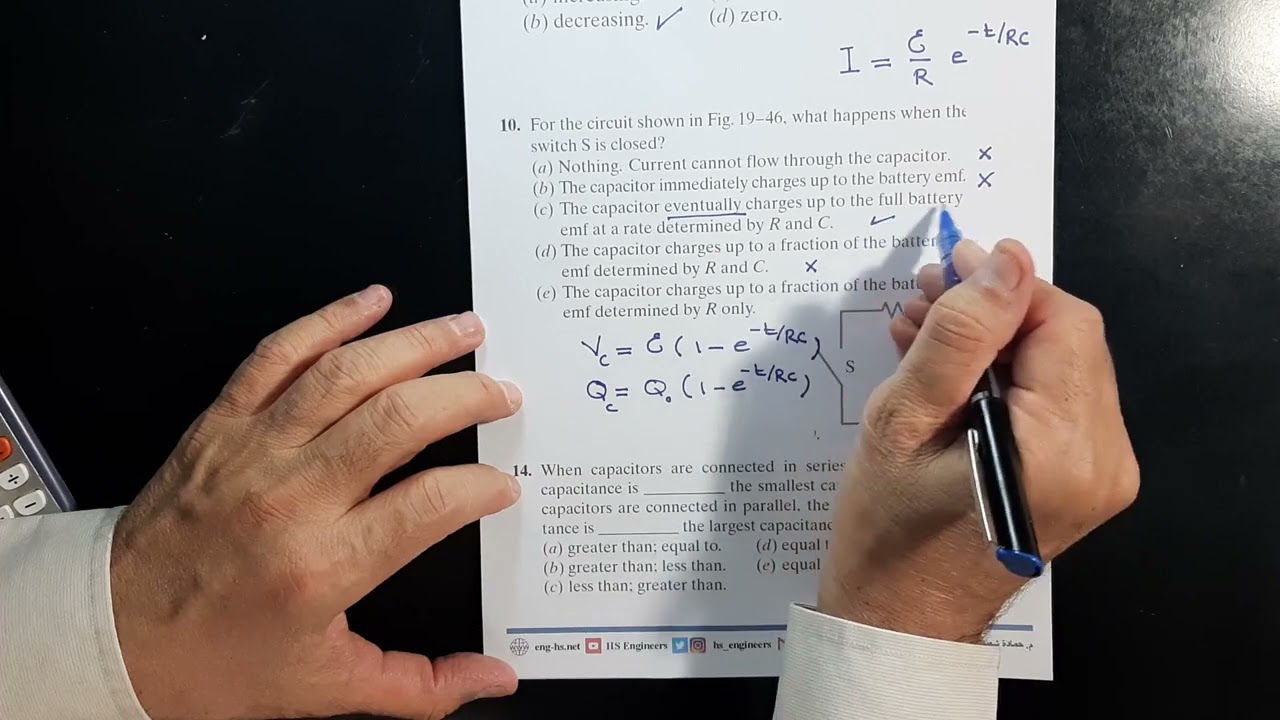 (b) decreasing. ✓ (d) zero.
I = ℰ/R e^-t/RC
10. For the circuit shown in Fig. 19–46, what happens when the
switch S is closed?
(a) Nothing. Current cannot flow through the capacitor. ×
(b) The capacitor immediately charges up to the battery emf. ×
(c) The capacitor eventually charges up to the full battery
emf at a rate determined by R and C. ✓
(d) The capacitor charges up to a fraction of the
emf determined by R and C. ×
(e) The capacitor charges up to a fraction of the
emf determined by R only.
V_c = ℰ (1 – e^-t/RC)
Q_c = Q₀ (1 – e^-t/RC)
S
14. When capacitors are connected in series
capacitance is ________ the smallest
capacitors are connected in parallel, the
tance is ________ the largest
(a) greater than; equal to. (d) equal
(b) greater than; less than. (e) equal
(c) less than; greater than.
eng-hs.net HS Engineers hs_engineers
÷
−